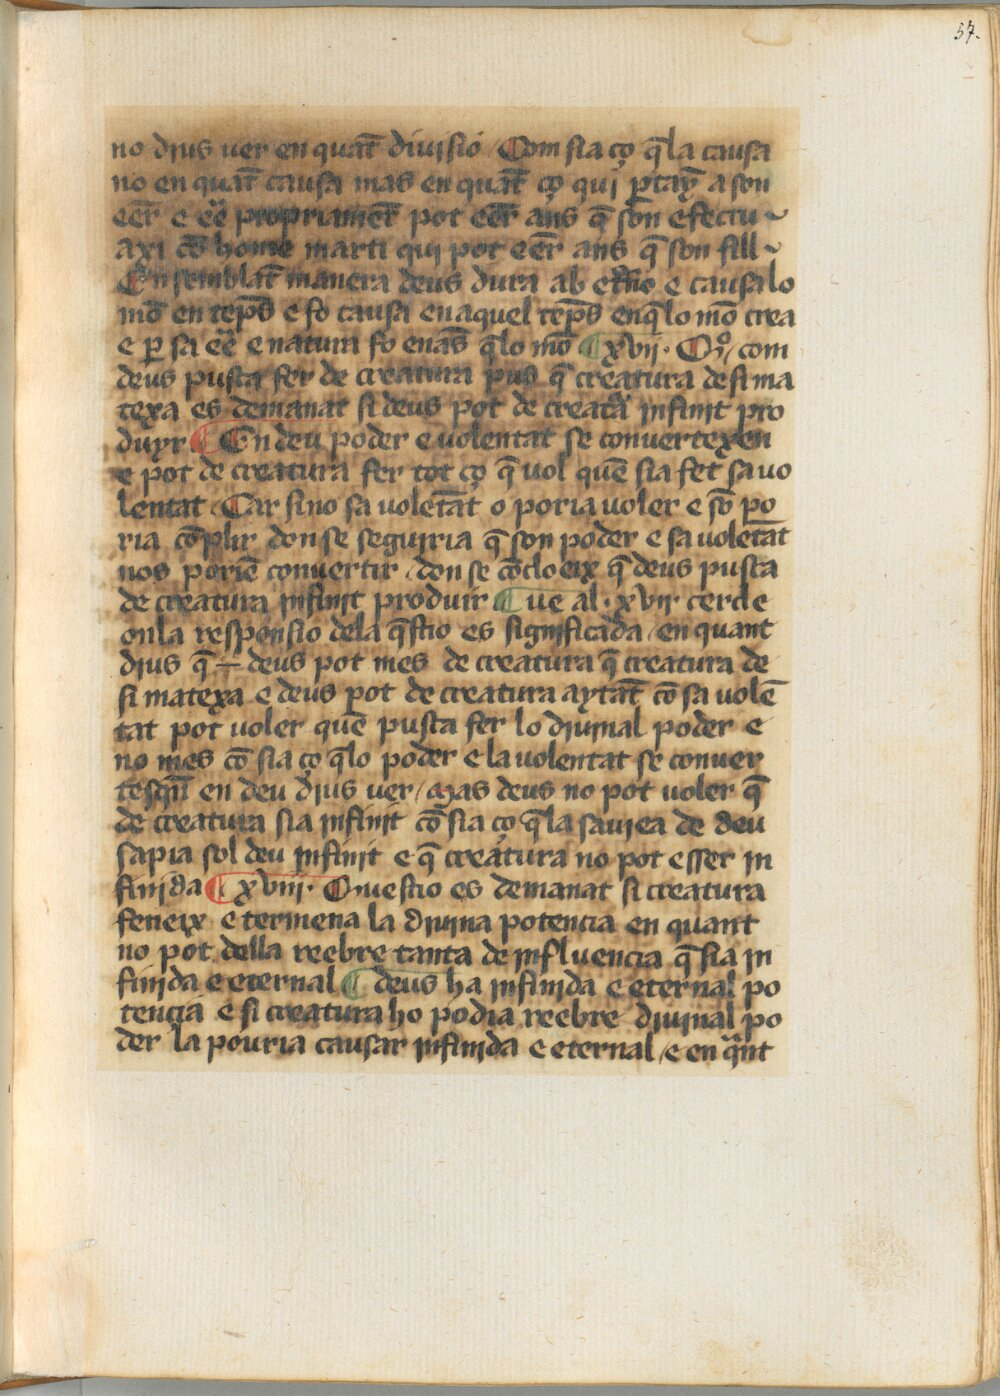 57.
no dius uer en quāt diuisio / Com sia ço q̄ la causa
no en quāt causa mas en quāt ço qui ꝑtay̅ a son
eēr e eē propriamēt pot eēr ans q̄ son efectu ~
axi cō home marti qui pot eēr ans q̄ son fill ~
En semblāt manera deus dura ab et̄no e causa lo
mō en tēps e fo causa en aquel tēps en q̄ lo mō crea
e ꝑ sa eē e natura fo enās q̄ lo mō ¶ xvij · Qo / com
deus pusca fer de creatura pus q̄ creatura de si ma
texa es demanat si deus pot de creatᵃ infinit pro
duyr ¶ En deu poder e volentat se convertexen
e pot de creatura fer tot ço q̄ vol quē sia fet sa vo
lentat / Car si no sa voletāt o poria voler e nō po
ria cōplir don se seguiria q̄ son poder e sa voletāt
nos poriē convertir / don se cōcloeix q̄ deus pusca
de creatura infinit produir ¶ Ve al · xvij · cercle
on la responsio de la q̄stio es significada / en quant
dius q̄ ÷ deus pot mes de creatura q̄ creatura de
si matexa e deus pot de creatura aytāt cō sa volē
tat pot voler quē pusca fer lo diuinal poder e
no mes cō sia ço q̄ lo poder e la volentat se conuer
tesqn̄ en deu dius uer / Mas deus no pot voler q̄
de creatura sia infinit cō sia ço q̄ la sauiea de deu
sapia sol deu infinit e q̄ creatura no pot esser in
finida ¶ xviij · Questio es demanat si creatura
feneix e termena la diuina potencia en quant
no pot della reebre tanta de influencia q̄ sia in
finida e eternal ¶ deus ha infinida e eternal po
tencia e si creatura ho podia reebre diuinal po
der la pouria causar infinida e eternal / e en qᵃnt